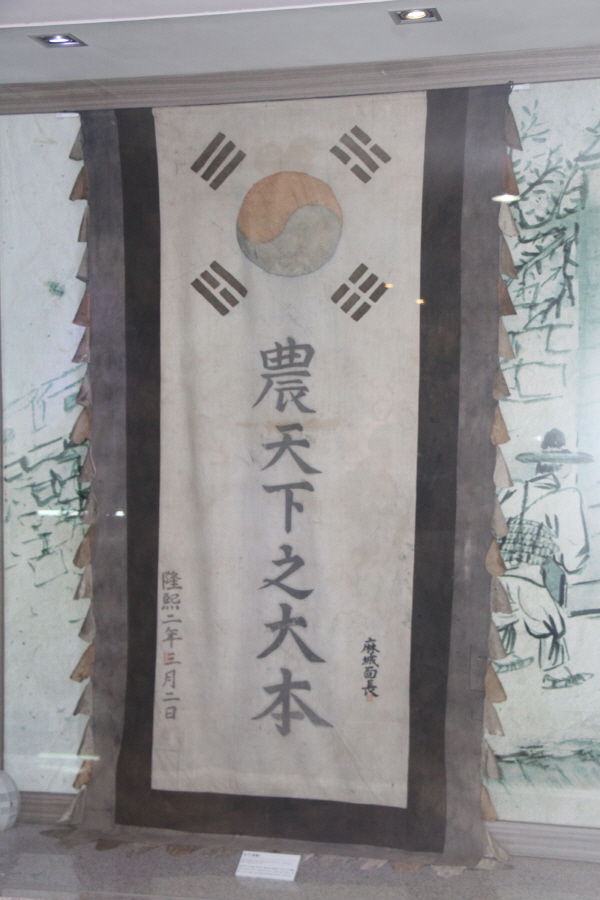 農天下之大本
隆熙二年三月二日
麻城面長